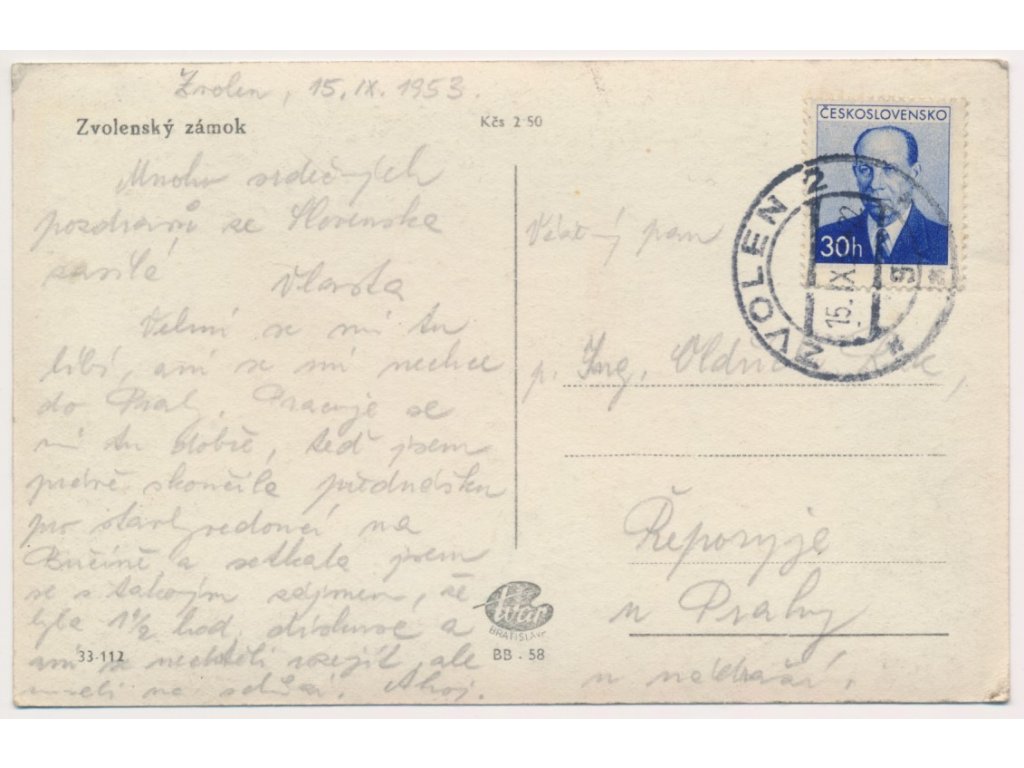 Zvolen, 15.IX.1953.
Zvolenský zámok
Kčs 2·50
Mnoho srdečných
pozdravů ze Slovenska
zasílá
Vlasta
Velmi se mi tu
líbí, ani se mi nechce
do Prahy. Pracuje se
mi tu dobře, teď jsem
právě skončila přednášku
pro na
Bučině a setkala jsem
se s takovým zájmem, že
byla 1½ hod. diskuse a
ani se nechtěli rozejít, ale
museli na schůzi. Ahoj.
33-112
Tvar
BRATISLAVA
BB - 58
ČESKOSLOVENSKO
30h
ZVOLEN 2
15.IX
Vážený pan
p. Ing. Oldřich
Řeporyje
u Prahy
u nádraží.